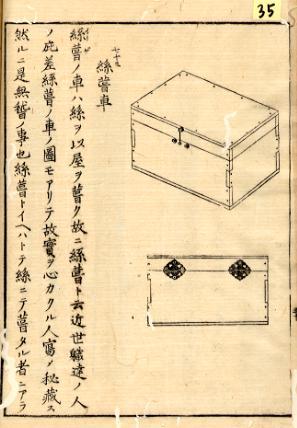 35
七十九
絲葺車
絲葺ノ車ハ絲ヲ以屋ヲ葺ク故ニ絲葺ト云近世職達ノ人
ノ庇差絲葺ノ車ノ圖モアリテ故實ヲ心カクル人寫メ秘藏ス
然ルニ是無稽ノ事也絲葺トイヘハトテ絲ニテ葺タル者ニアラ